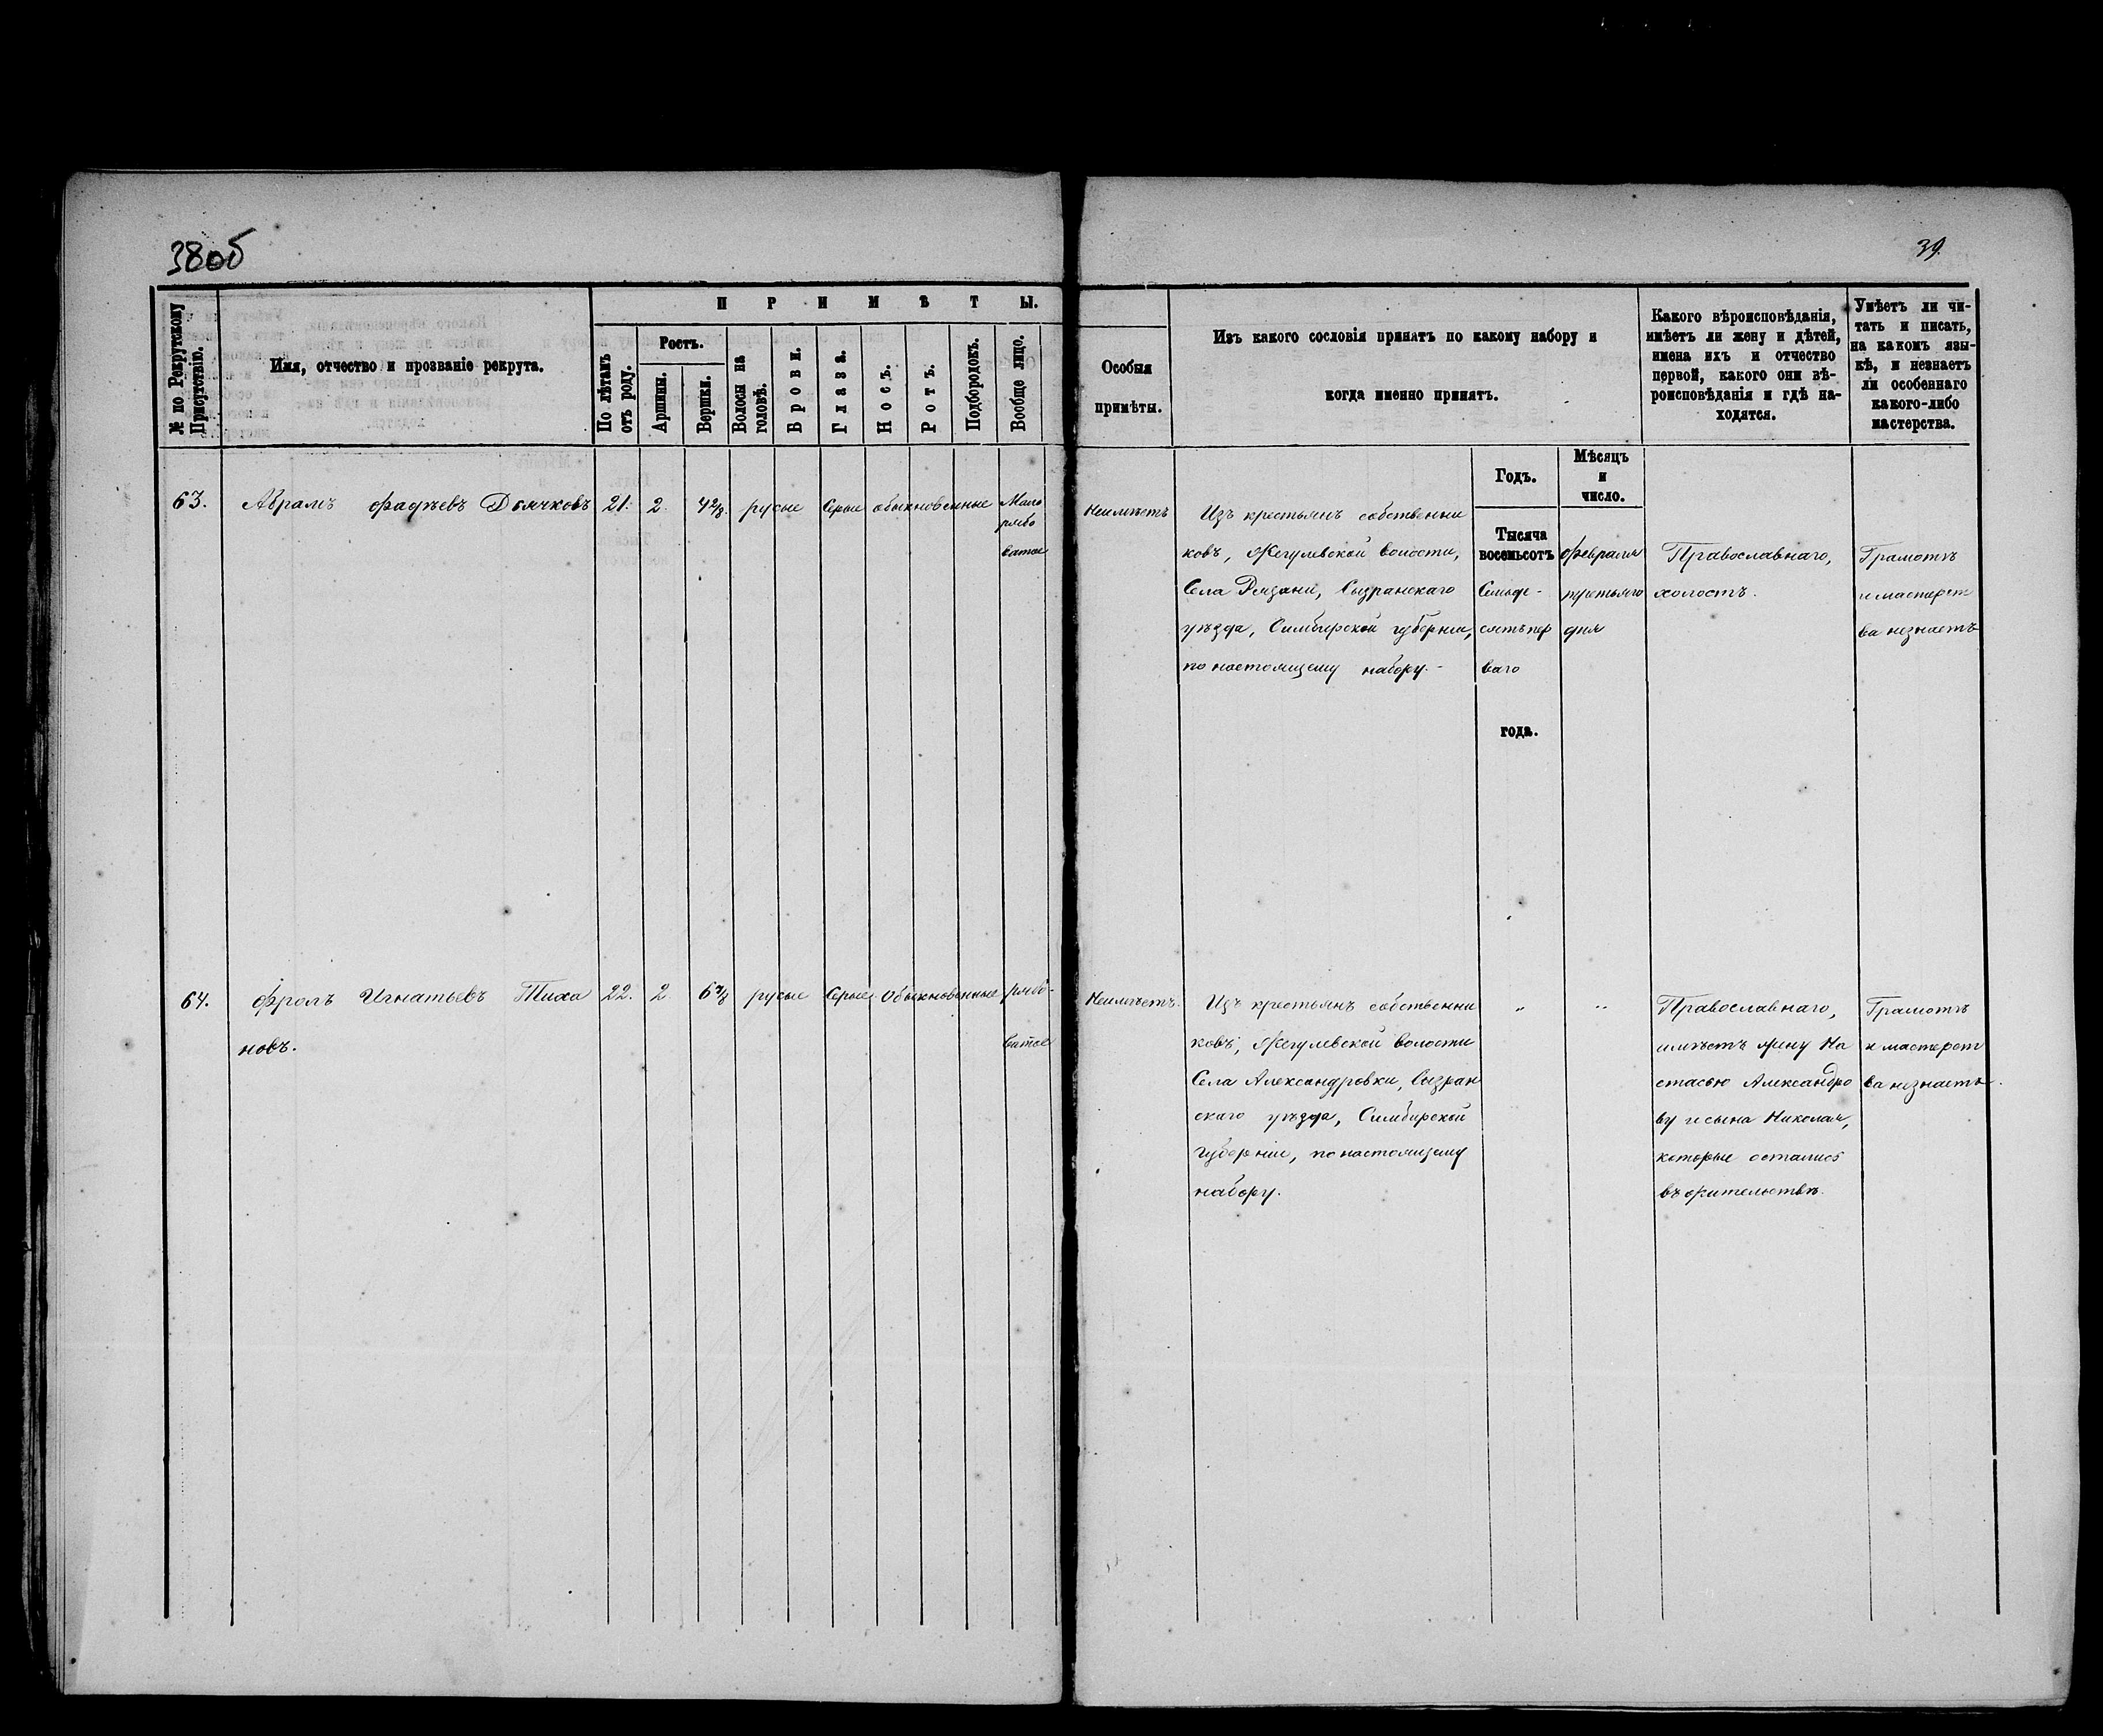 38об
39.
№ по Рекрутскому Присутствію.
Имя, отчество и прозваніе рекрута.
ПРИМѢТЫ.
По лѣтамъ отъ роду.
Ростъ.
Аршины.
Вершки.
Волосы на головѣ.
Брови.
Глаза.
Носъ.
Ротъ.
Подбородокъ.
Вообще лицо.
Особыя
примѣты.
Изъ какого сословія принятъ по какому набору и
когда именно принятъ.
Какого вѣроисповѣданія,
имѣетъ ли жену и дѣтей,
имена ихъ и отчество
первой, какого они вѣ-
роисповѣданія и гдѣ на-
ходятся.
Умѣетъ ли чи-
тать и писать,
на какомъ язы-
кѣ, и незнаетъ
ли особеннаго
какого-либо
мастерства.
Годъ.
Мѣсяцъ
и
число.
63. Абрамъ Фадѣевъ Дьячковъ 21. 2. 4 2/8. русые Серые обыкновенные Мало
рябо
ватое
Неимѣетъ
Изъ крестьянъ собственни
ковъ, Жегулевской волости,
Села Рязани, Сызранскаго
уѣзда, Симбирской губерніи,
по настоящему набору.-
Тысяча
восемьсотъ
Семьде-
сятъ пер
ваго
года.
Февраля
третьяго
дня
Православнаго,
холостъ.
Грамотѣ
и мастерст
ва незнаетъ
64. Фролъ Игнатьевъ Тиха 22. 2 русые Серые Обыкновенные рябо-
новъ.
ватое
Неимѣетъ.
Изъ крестьянъ собственни
ковъ, Жегулевской волости
Села Александровки, Сызран
скаго уѣзда, Симбирской
губерніи, по настоящему
набору.
„
„
Православнаго,
имѣетъ жену На
стасью Александро
ву и сына Николая,
которые остались
въ жительствѣ.
Грамотѣ
и мастерст
ва незнаетъ.